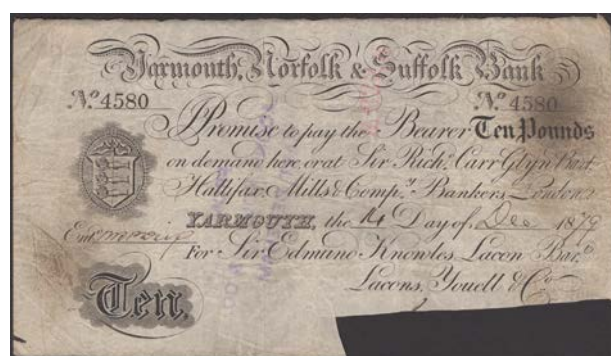 Yarmouth, Norfolk & Suffolk Bank
No. 4580 No. 4580
I Promise to pay the Bearer Ten Pounds
on demand here, or at Sir Richd. Carr Glyn Bart.
Hallifax, Mills & Compy. Bankers London
YARMOUTH, the 14 Day of Dec 1879
Entd.
For Sir Edmund Knowles Lacon Bart.
Lacons, Youell & Co.
Ten.